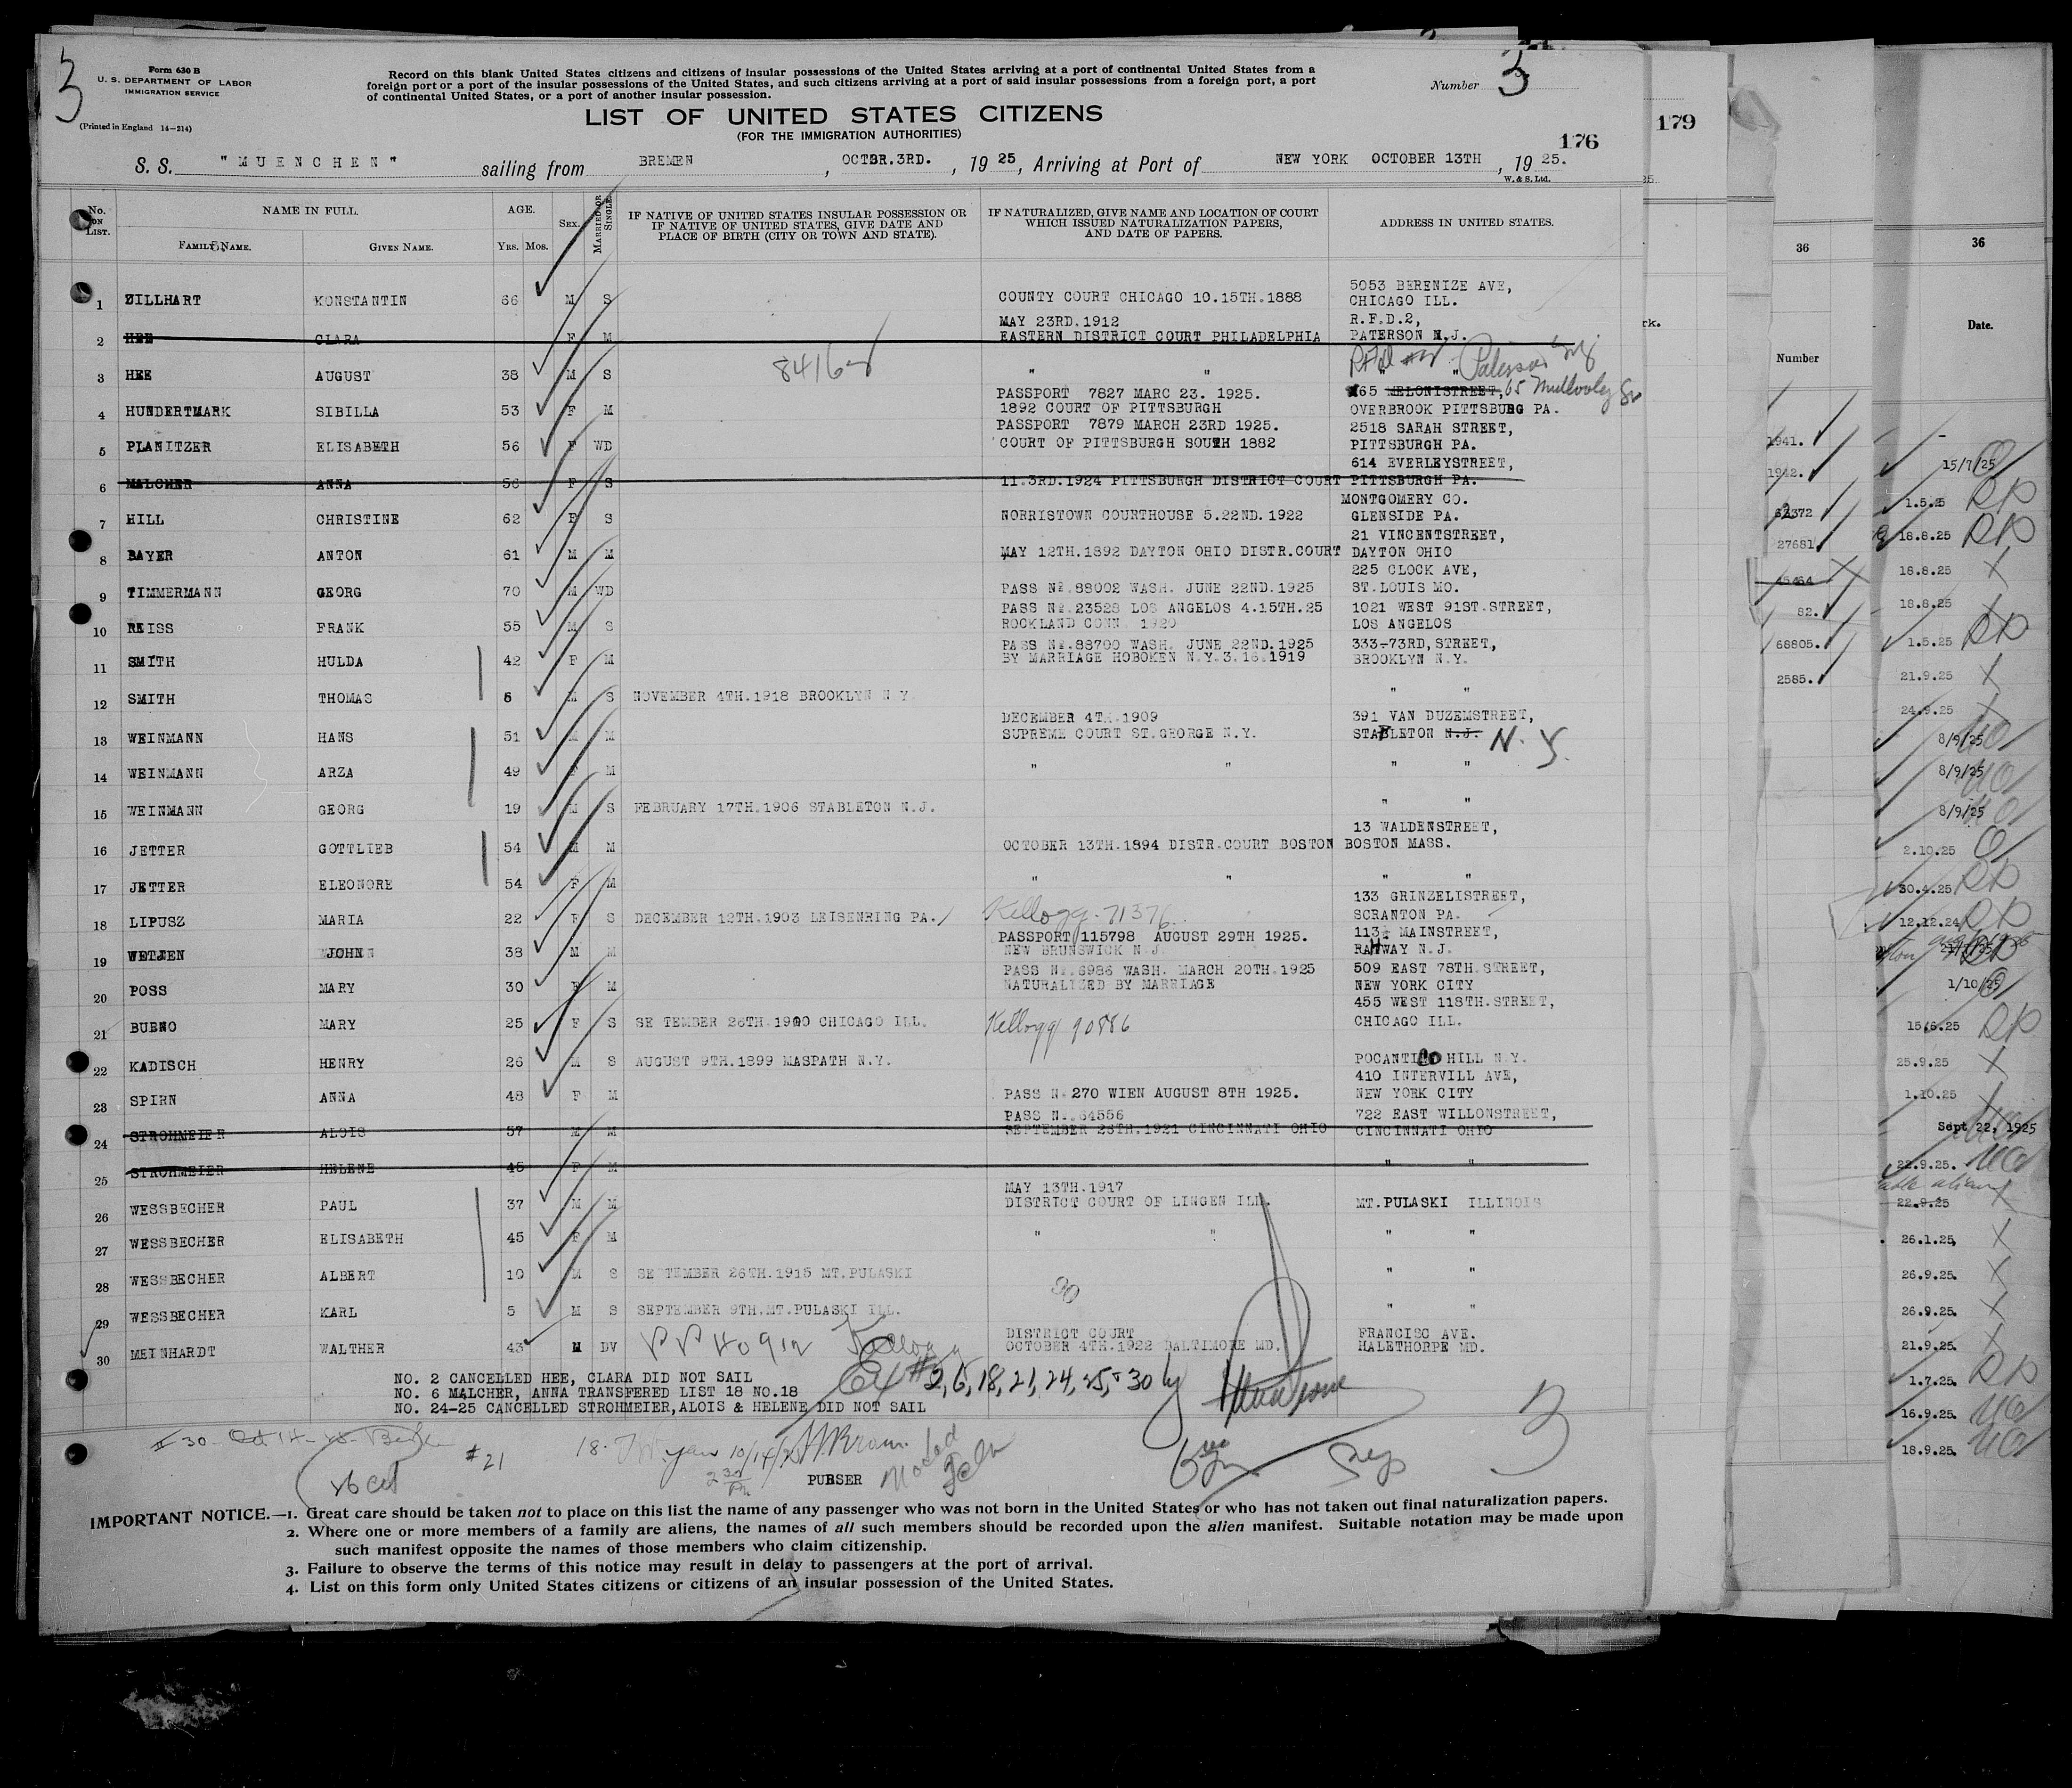 3
Form 630 B
U. S. DEPARTMENT OF LABOR
IMMIGRATION SERVICE
(Printed in England 14—214)
Record on this blank United States citizens and citizens of insular possessions of the United States arriving at a port of continental United States from a
foreign port or a port of the insular possessions of the United States, and such citizens arriving at a port of said insular possessions from a foreign port, a port
of continental United States, or a port of another insular possession.
Number 3
LIST OF UNITED STATES CITIZENS
(FOR THE IMMIGRATION AUTHORITIES)
176
179
S. S. "MUENCHEN" sailing from BREMEN, OCTBR.3RD., 1925, Arriving at Port of NEW YORK OCTOBER 13TH, 1925.
W. & S. Ltd.
No. ON LIST.
NAME IN FULL.
FAMILY NAME.
GIVEN NAME.
AGE.
YRS. MOS.
SEX.
MARRIED OR SINGLE
IF NATIVE OF UNITED STATES INSULAR POSSESSION OR
IF NATIVE OF UNITED STATES, GIVE DATE AND
PLACE OF BIRTH (CITY OR TOWN AND STATE).
IF NATURALIZED, GIVE NAME AND LOCATION OF COURT
WHICH ISSUED NATURALIZATION PAPERS,
AND DATE OF PAPERS.
ADDRESS IN UNITED STATES.
5053 BERENIZE AVE,
1 ZILLHART KONSTANTIN 66 M S COUNTY COURT CHICAGO 10.15TH.1888 CHICAGO ILL.
MAY 23RD.1912 R.F.D.2,
2 HEE CLARA F M EASTERN DISTRICT COURT PHILADELPHIA PATERSON N.J.
3 HEE AUGUST 38 M S " " " "
PASSPORT 7827 MARC 23. 1925. 65 MELONISTREET,
4 HUNDERTMARK SIBILLA 53 F M 1892 COURT OF PITTSBURGH OVERBROOK PITTSBURG PA.
PASSPORT 7879 MARCH 23RD 1925. 2518 SARAH STREET,
5 PLANITZER ELISABETH 56 F WD COURT OF PITTSBURGH SOUTH 1882 PITTSBURGH PA.
614 EVERLEYSTREET,
6 MALCHER ANNA 56 F S 11.3RD.1924 PITTSBURGH DISTRICT COURT PITTSBURGH PA.
MONTGOMERY CO.
7 HILL CHRISTINE 62 F S NORRISTOWN COURTHOUSE 5.22ND.1922 GLENSIDE PA.
21 VINCENTSTREET,
8 BAYER ANTON 61 M M MAY 12TH.1892 DAYTON OHIO DISTR.COURT DAYTON OHIO
225 CLOCK AVE,
9 TIMMERMANN GEORG 70 M WD PASS No.88002 WASH. JUNE 22ND.1925 ST.LOUIS MO.
PASS No.23528 LOS ANGELOS 4.15TH.25 1021 WEST 91ST.STREET,
10 REISS FRANK 55 M S ROCKLAND CONN. 1920 LOS ANGELOS
PASS No.88700 WASH. JUNE 22ND.1925 333-73RD,STREET,
11 SMITH HULDA 42 F M BY MARRIAGE HOBOKEN N.Y.3.16.1919 BROOKLYN N.Y.
12 SMITH THOMAS 6 M S NOVEMBER 4TH.1918 BROOKLYN N Y. " "
DECEMBER 4TH.1909 391 VAN DUZEMSTREET,
13 WEINMANN HANS 51 M M SUPREME COURT ST.GEORGE N.Y. STAPLETON N.J. N.Y.
14 WEINMANN ARZA 49 F M " " " "
15 WEINMANN GEORG 19 M S FEBRUARY 17TH.1906 STABLETON N.J. " "
13 WALDENSTREET,
16 JETTER GOTTLIEB 54 M M OCTOBER 13TH.1894 DISTR.COURT BOSTON BOSTON MASS.
17 JETTER ELEONORE 54 F M " " " "
133 GRINZELISTREET,
18 LIPUSZ MARIA 22 F S DECEMBER 12TH.1903 LEISENRING PA. Kellogg-71376 SCRANTON PA.
PASSPORT 115798 AUGUST 29TH 1925. 113½ MAINSTREET,
19 WETJEN JOHN 38 M M NEW BRUNSWICK N.J. RAHWAY N.J.
PASS No.6986 WASH. MARCH 20TH.1925 509 EAST 78TH.STREET,
20 POSS MARY 30 F M NATURALIZED BY MARRIAGE NEW YORK CITY
455 WEST 118TH.STREET,
21 BUENO MARY 25 F S SE TEMBER 26TH.1900 CHICAGO ILL. Kellogg 90886 CHICAGO ILL.
22 KADISCH HENRY 26 M S AUGUST 9TH.1899 MASPATH N.Y. POCANTICO HILL N.Y.
410 INTERVILL AVE,
23 SPIRN ANNA 48 F M PASS N.270 WIEN AUGUST 8TH 1925. NEW YORK CITY
PASS N..64556 722 EAST WILLONSTREET,
24 STROHMEIER ALOIS 57 M M SEPTEMBER 28TH.1921 CINCINNATI OHIO CINCINNATI OHIO
25 STROHMEIER HELENE 45 F M " "
MAY 13TH.1917
26 WESSBECHER PAUL 37 M M DISTRICT COURT OF LINGEN ILL. MT.PULASKI ILLINOIS
27 WESSBECHER ELISABETH 45 F M " " " "
28 WESSBECHER ALBERT 10 M S SE TEMBER 26TH.1915 MT.PULASKI " "
29 WESSBECHER KARL 5 M S SEPTEMBER 9TH.MT.PULASKI ILL. " "
DISTRICT COURT FRANCISC AVE.
30 MEINHARDT WALTHER 43 M DV OCTOBER 4TH.1922 BALTIMORE MD. HALETHORPE MD.
NO. 2 CANCELLED HEE, CLARA DID NOT SAIL
NO. 6 MALCHER, ANNA TRANSFERED LIST 18 NO.18
NO. 24-25 CANCELLED STROHMEIER,ALOIS & HELENE DID NOT SAIL
#2,6,18,21,24,25,+30
#21
PURSER
IMPORTANT NOTICE.—1. Great care should be taken not to place on this list the name of any passenger who was not born in the United States or who has not taken out final naturalization papers.
2. Where one or more members of a family are aliens, the names of all such members should be recorded upon the alien manifest. Suitable notation may be made upon
such manifest opposite the names of those members who claim citizenship.
3. Failure to observe the terms of this notice may result in delay to passengers at the port of arrival.
4. List on this form only United States citizens or citizens of an insular possession of the United States.
25.
rk.
36
Number
1941.
1942.
27681
45464
82.
68805.
2585.
36
Date.
15/7/25
1.5.25
18.8.25
18.8.25
18.8.25
1.5.25
21.9.25
24.9.25
8/9/25
8/9/25
8/9/25
2.10.25
30.4.25
12.12.24
1/10/25
15/6.25
25.9.25
1.10.25
Sept 22, 1925
22.9.25.
22.9.25
26.1.25,
26.9.25.
26.9.25.
21.9.25.
1.7.25.
16.9.25.
18.9.25.